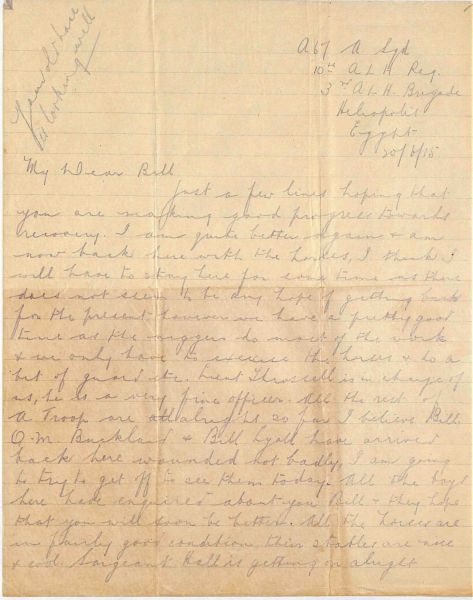 Your old horse
is looking well
A 67 A Sqd
10th A L H Reg.
3rd A L. H. Brigade
Heliopolis
Egypt
20/6/15
My Dear Bill
Just a few lines hoping that
you are making good progress towards
recovery. I am quite better again & am
now back here with the horses, I think I
will have to stay here for some time as there
does not seem to be any hope of getting back
for the present however we have a pretty good
time as the niggers do most of the work
& we only have to exercise the horses & do a
bit of guard etc. Lieut Throssell is in charge of
us, he is a very fine officer. All the rest of
A Troop are alright so far I believe Bill.
Q.M. Buckland & Bill Lyall have arrived
back here wounded not badly, I am going
to try to get off to see them today. All the boys
here have enquired about you Bill & they hope
that you will soon be better. All the horses are
in fairly good condition their stables are nice
& cool. Sargeant Hall is getting on alright